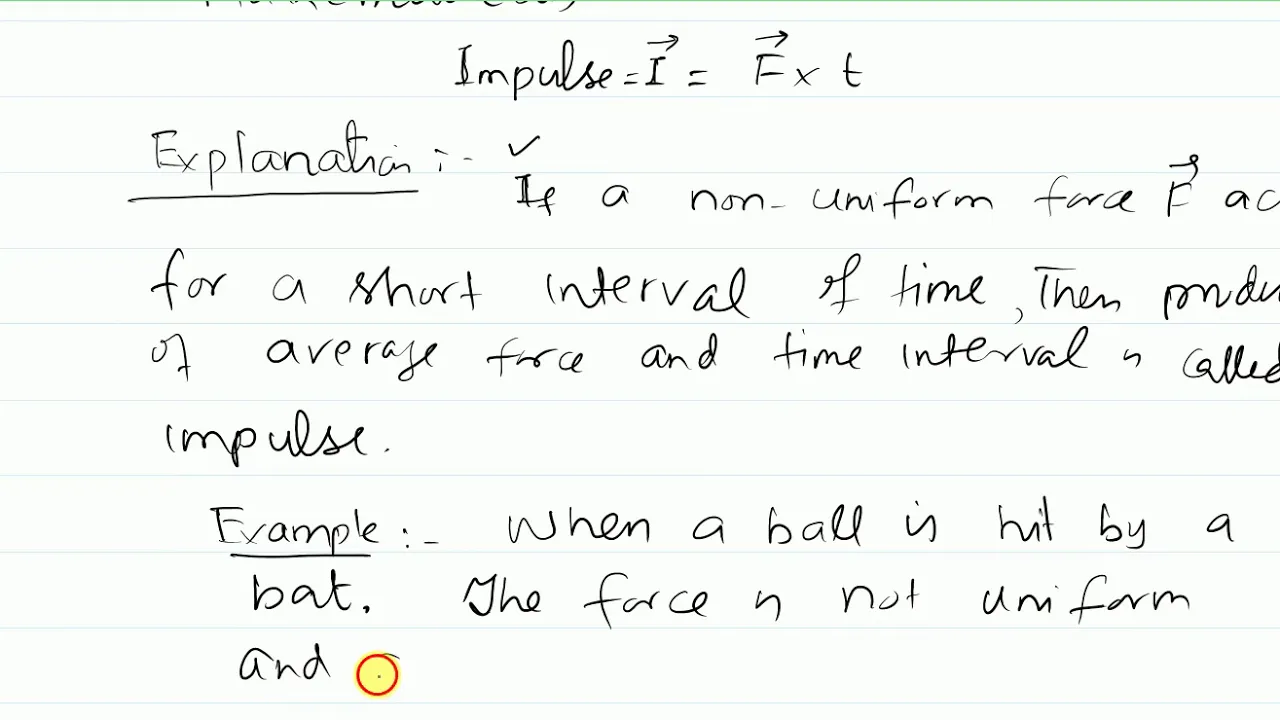 Impulse = I⃗ = F⃗ × t
Explanation :- ✓
If a non-uniform force F⃗ ac
for a short interval of time, Then produ
of average force and time interval is called
impulse.
Example :- When a ball is hit by a
bat. The force is not uniform
and